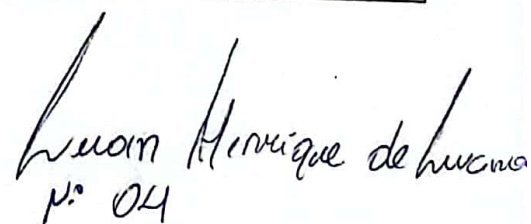 Luan Henrique de Lucena
Nº 04